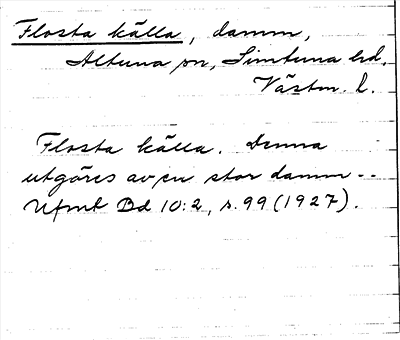 Flosta källa, damm,
Altuna sn, Simtuna hd,
Västm. l.
Flosta källa. Denna
utgöres av en stor damm --
Ufmt Bd 10:2, s. 99 (1927).